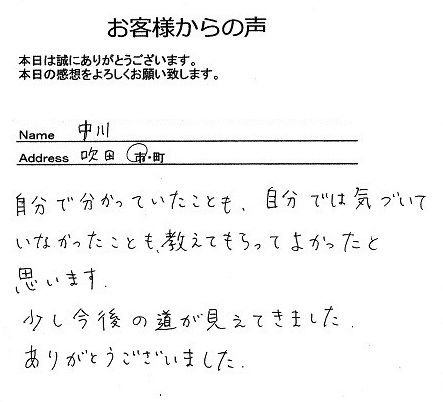 お客様からの声
本日は誠にありがとうございます。
本日の感想をよろしくお願い致します。
Name 中川
Address 吹田 市・町
自分で分かっていたことも、自分では気づいて
いなかったことも、教えてもらってよかったと
思います.
少し今後の道が見えてきました.
ありがとうございました.